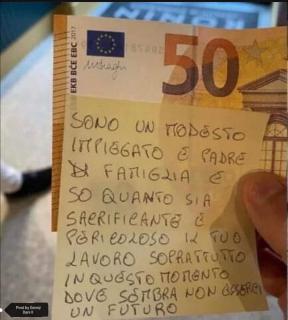 EKB BCE EBC 2017
50
SONO UN MODESTO
IMPIEGATO E PADRE
DI FAMIGLIA E
SO QUANTO SIA
SACRIFICANTE E
PERICOLOSO IL TUO
LAVORO SOPRATTUTTO
IN QUESTO MOMENTO
DOVE SEMBRA NON ESSERCI
UN FUTURO